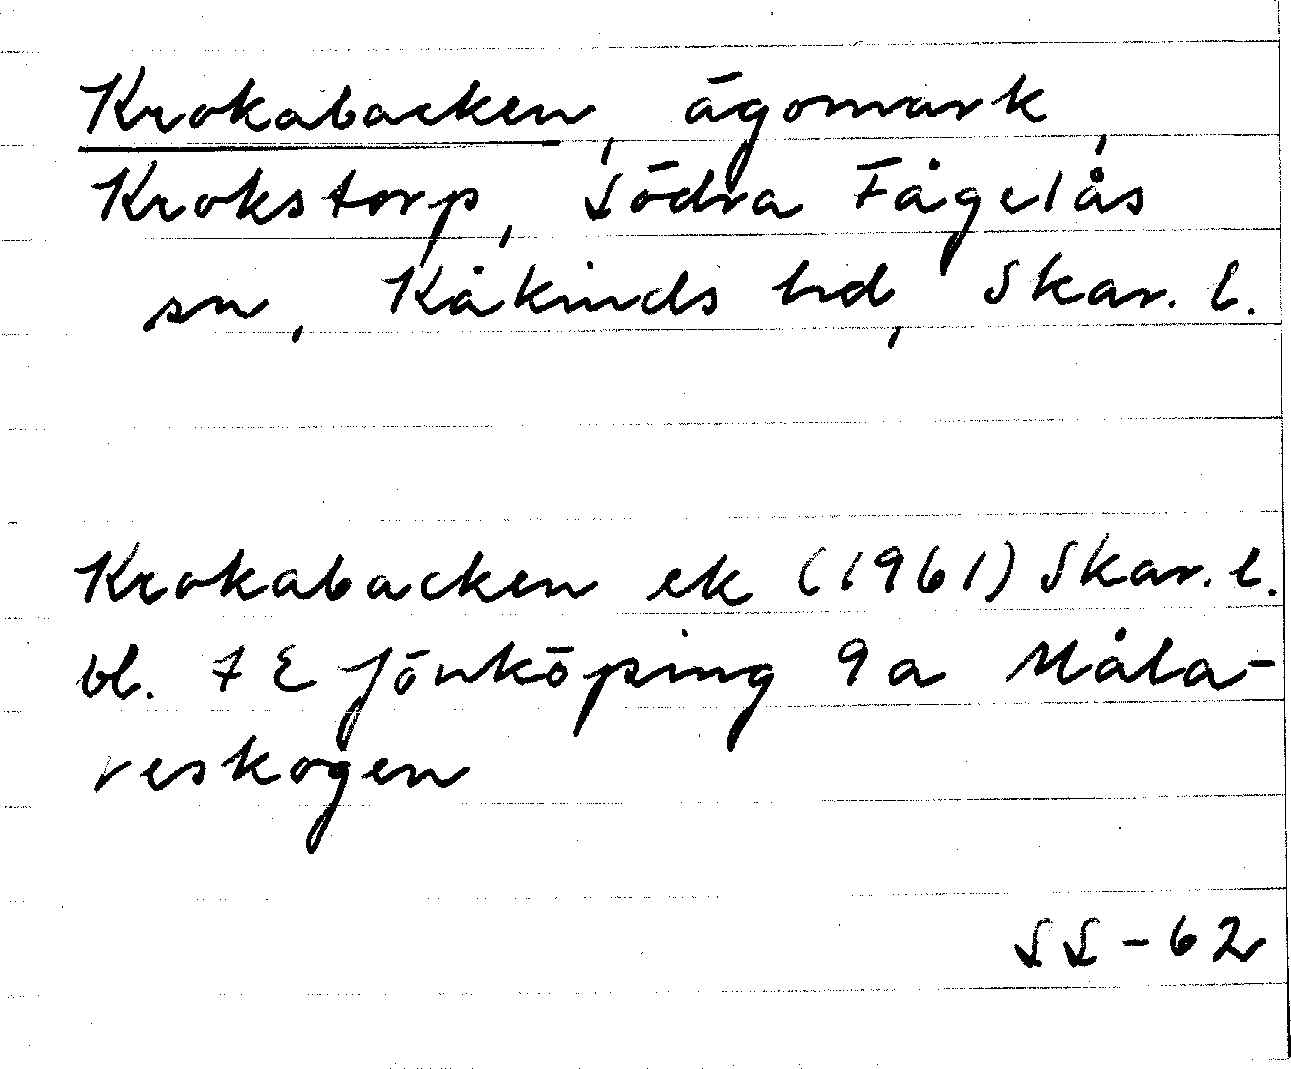 Krokabacken, ägomark,
Krokstorp, Södra Fågelås
sn, Kåkinds hd, Skar. l.
Krokabacken ek (1961) Skar. l.
bl. 7 E Jönköping 9a Måla-
reskogen
SS-62